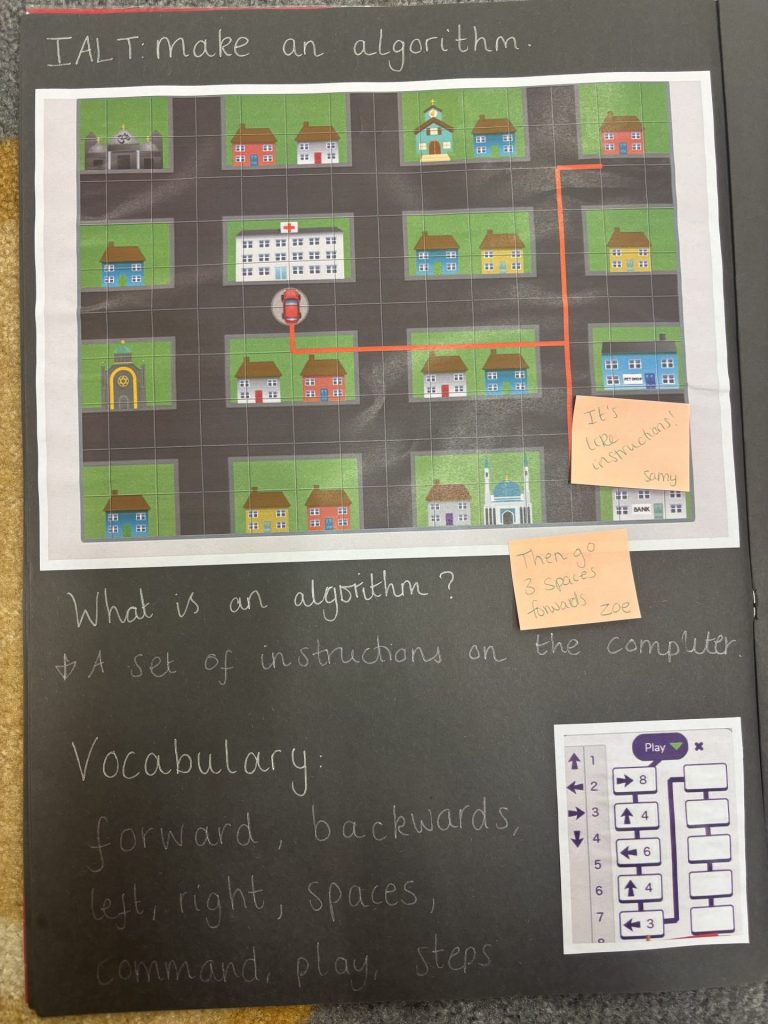 IALT: make an algorithm.
ॐ
PET SHOP
It's
like
instructions!
Samy
BANK
Then go
3 spaces
forwards Zoe
What is an algorithm?
A set of instructions on the computer.
Vocabulary:
forward, backwards,
left, right, spaces,
command, play, steps
Play
1
2
3
4
5
6
7
8
→ 8
↑ 4
← 6
↑ 4
← 3